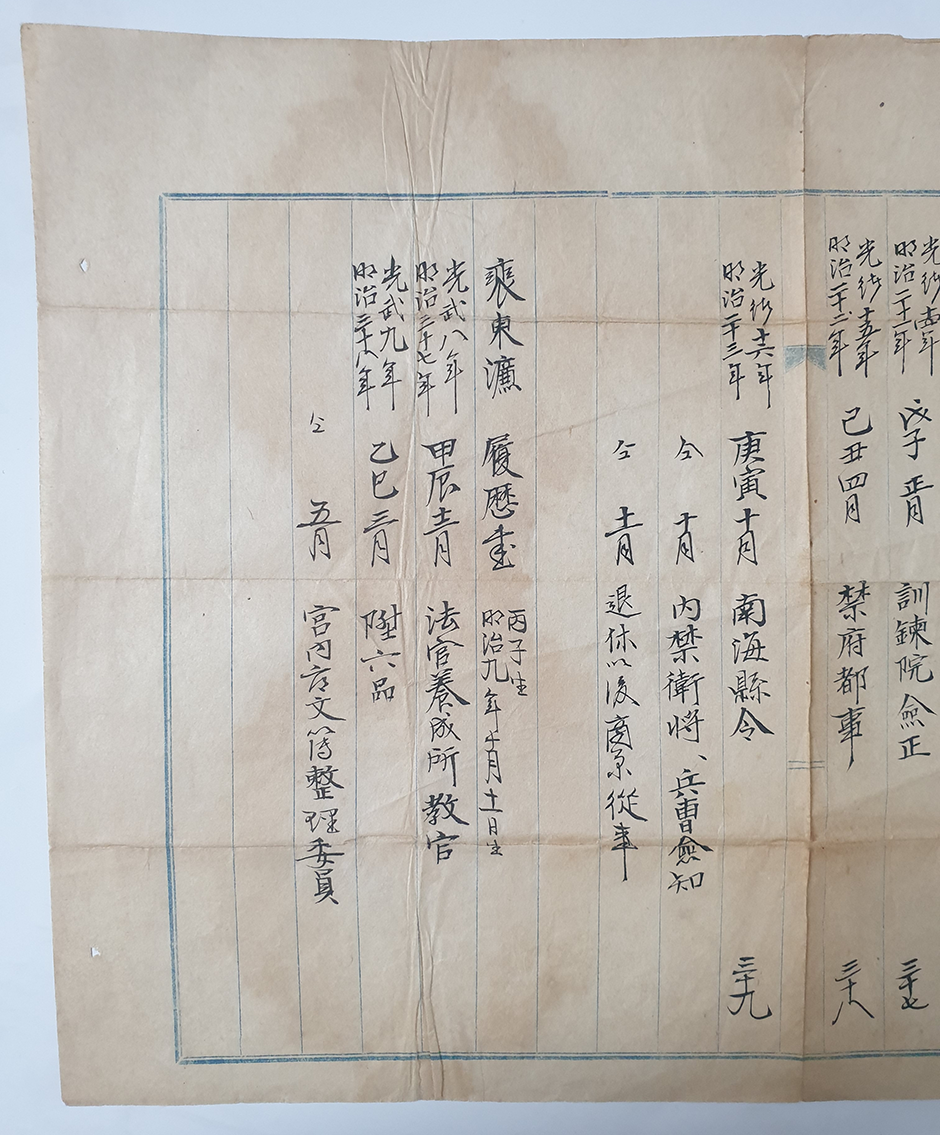 光緒十四年 明治二十一年 戊子 正月 訓鍊院僉正 三十七
光緒十五年 明治二十二年 己丑 四月 禁府都事 三十八
光緒十六年 明治二十三年 庚寅 十月 南海縣令 三十九
仝 十月 內禁衛將、兵曹僉知
仝 十一月 退休以後商業從事
裵東濂 履歷書 丙子生 明治九年 十月十一日生
光武八年 明治三十七年 甲辰 十二月 法官養成所教官
光武九年 明治三十八年 乙巳 三月 陞六品
仝 五月 宮內府文簿整理委員